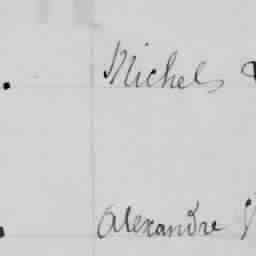 Michels
Alexandre